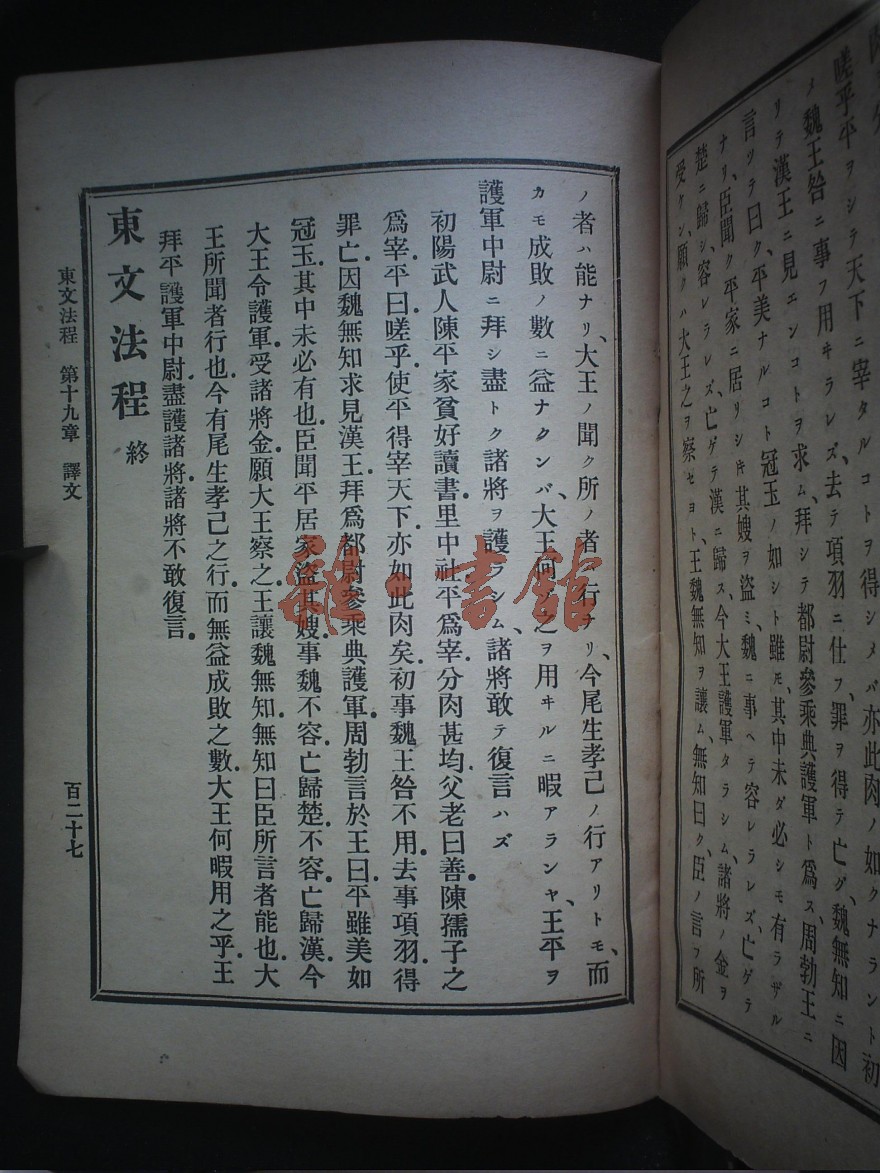 嗟乎平ヲシテ天下ニ宰タルコトヲ得シメバ亦此肉ノ如クナラント初
メ魏王咎ニ事フ用ヰラレズ、去テ項羽ニ仕フ、罪ヲ得テ亡グ、魏無知ニ因
リテ漢王ニ見エンコトヲ求ム、拜シテ都尉參乘典護軍ト爲ス、周勃王ニ
言ツテ曰ク、平美ナルコト冠玉ノ如シト雖モ、其中未ダ必シモ有ラザル
ナリ、臣聞ク平家ニ居リシキ其嫂ヲ盜ミ、魏ニ事ヘテ容レラレズ、亡ゲテ
楚ニ歸シ、容レラレズ、亡ゲテ漢ニ歸ス、今大王護軍タラシム、諸將ノ金ヲ
受ケシ、願クハ大王之ヲ察セヨト、王魏無知ヲ讓ム、無知曰ク、臣ノ言フ所
ノ者ハ能ナリ、大王ノ聞ク所ノ者ハ行ナリ、今尾生孝己ノ行アリトモ、而
カモ成敗ノ數ニ益ナクンバ、大王何ノ之ヲ用ヰルニ暇アランヤ、王平ヲ
護軍中尉ニ拜シ盡トク諸將ヲ護ラシム、諸將敢テ復言ハズ
初陽武人陳平家貧好讀書。里中社平爲宰。分肉甚均。父老曰善。陳孺子之
爲宰。平曰嗟乎。使平得宰天下。亦如此肉矣。初事魏王咎不用。去事項羽。得
罪亡。因魏無知求見漢王。拜爲都尉參乘典護軍。周勃言於王曰。平雖美如
冠玉。其中未必有也。臣聞平居家盜其嫂。事魏不容。亡歸楚。不容。亡歸漢。今
大王令護軍。受諸將金。願大王察之。王讓魏無知。無知曰臣所言者能也。大
王所聞者行也。今有尾生孝己之行。而無益成敗之數。大王何暇用之乎。王
拜平護軍中尉。盡護諸將。諸將不敢復言。
東文法程 終
東文法程 第十九章 譯文 百二十七
雜·書館